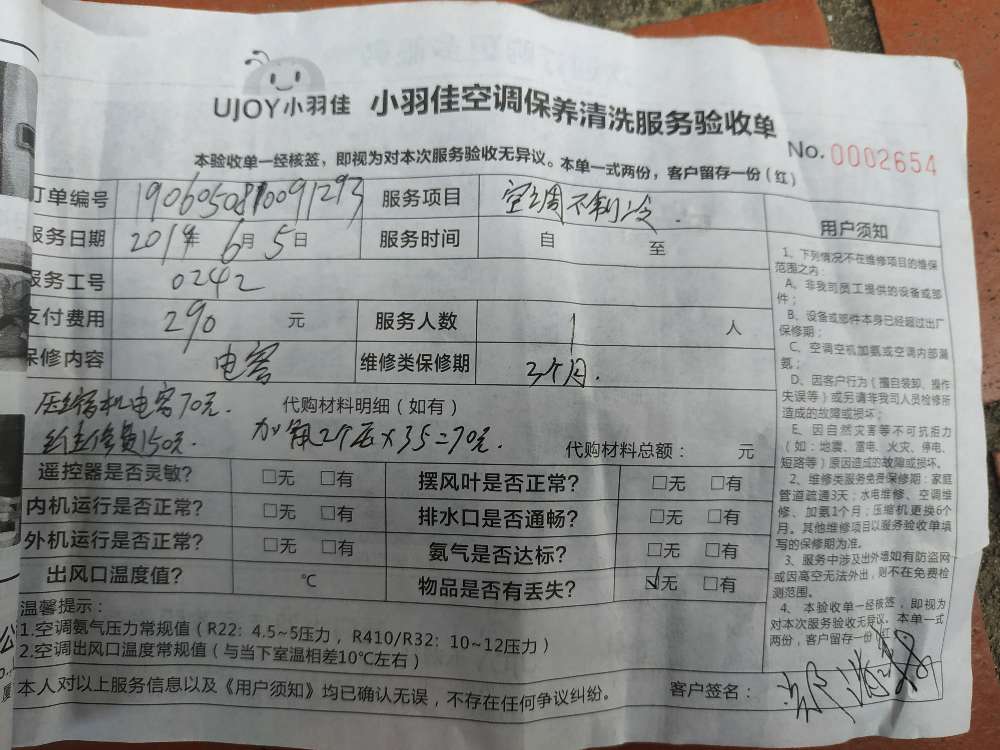 UJOY小羽佳 小羽佳空调保养清洗服务验收单
No. 0002654
本验收单一经核签，即视为对本次服务验收无异议。本单一式两份，客户留存一份（红）
订单编号 1906050810091293 服务项目 空调不制冷.
服务日期 2019年6月5日 服务时间 自 至
服务工号 0242
支付费用 290 元 服务人数 1 人
保修内容 电容 维修类保修期 3个月.
压缩机电容70元. 代购材料明细（如有）
维修费150元. 加氟2个压×35=70元. 代购材料总额： 元
遥控器是否灵敏? □无 □有 摆风叶是否正常? □无 □有
内机运行是否正常? □无 □有 排水口是否通畅? □无 □有
外机运行是否正常? □无 □有 氨气是否达标? □无 □有
出风口温度值? ℃ 物品是否有丢失? ☑无 □有
温馨提示：
1.空调氨气压力常规值（R22：4.5~5压力，R410/R32：10~12压力）
2.空调出风口温度常规值（与当下室温相差10℃左右）
本人对以上服务信息以及《用户须知》均已确认无误，不存在任何争议纠纷。 客户签名：
用户须知
1、下列情况不在维修项目的维保
范围之内：
A、非我司员工提供的设备或部
件；
B、设备或部件本身已经超过出厂
保修期；
C、空调空机加氨或空调内部漏
氨；
D、因客户行为（擅自装卸、操作
失误等）或另请非我司人员检修所
造成的故障或损坏；
E、因自然灾害等不可抗拒力
（如：地震、雷电、火灾、停电、
短路等）原因造成的故障或损坏。
2、维修类服务免费保修期：家庭
管道疏通3天；水电维修、空调维
修、加氨1个月；压缩机更换6个
月。其他维修项目以服务验收单填
写的保修期为准。
3、服务中涉及出外墙如有防盗网
或因高空无法外出，则不在免费检
测范围。
4、本验收单一经核签，即视为
对本次服务验收无异议。本单一式
两份，客户留存一份（红）